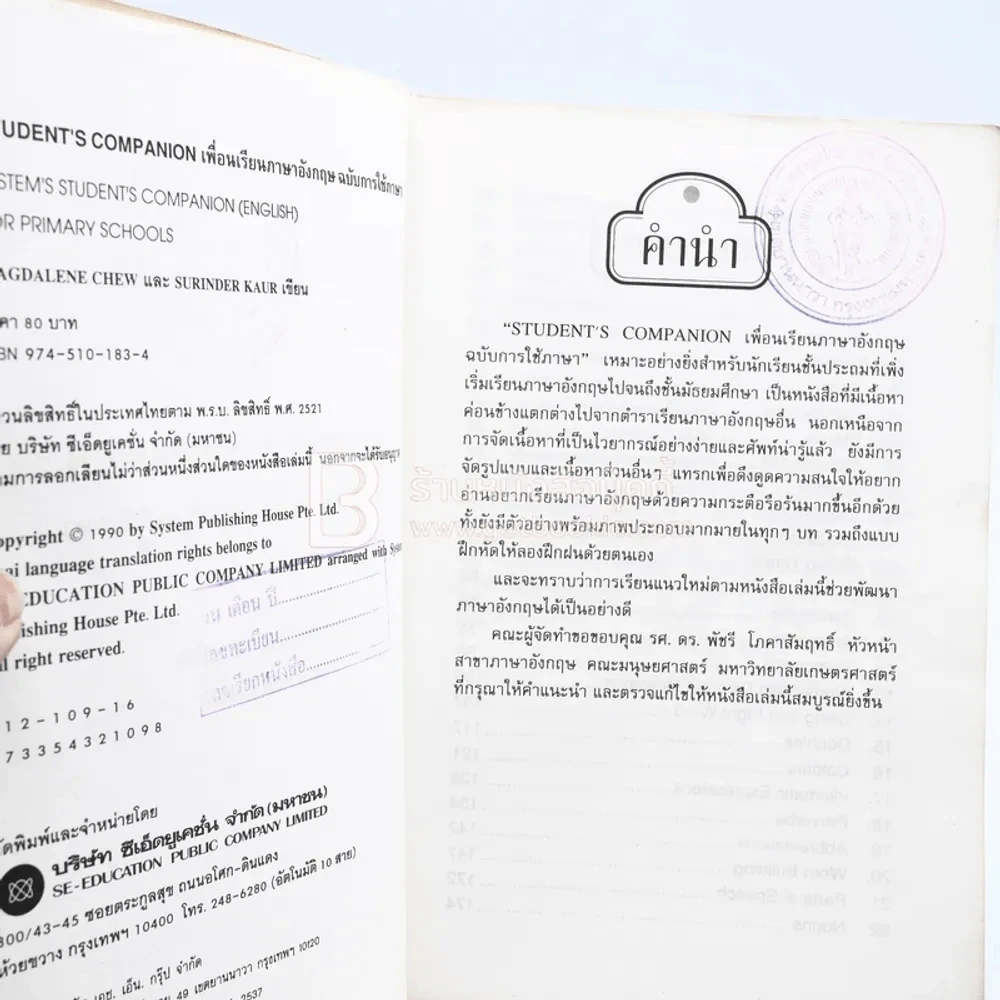 STUDENT'S COMPANION เพื่อนเรียนภาษาอังกฤษ ฉบับการใช้ภาษา
STUDENT'S COMPANION (ENGLISH)
PRIMARY SCHOOLS
CHEW และ SURINDER KAUR เขียน
80 บาท
974-510-183-4
ลิขสิทธิ์ในประเทศไทยตาม พ.ร.บ. ลิขสิทธิ์ พ.ศ. 2521
บริษัท ซีเอ็ดยูเคชั่น จำกัด (มหาชน)
การลอกเลียนไม่ว่าส่วนหนึ่งส่วนใดของหนังสือเล่มนี้ นอกจากจะได้รับอนุญาต
© 1990 by System Publishing House Pte. Ltd.
language translation rights belongs to
EDUCATION PUBLIC COMPANY LIMITED arranged with
House Pte. Ltd.
right reserved.
เดือน ปี
เลขทะเบียน
เลขเรียกหนังสือ
12-109-16
73354321098
จัดพิมพ์และจำหน่ายโดย
บริษัท ซีเอ็ดยูเคชั่น จำกัด (มหาชน)
SE-EDUCATION PUBLIC COMPANY LIMITED
800/43-45 ซอยตระกูลสุข ถนนอโศก-ดินแดง
ห้วยขวาง กรุงเทพฯ 10400 โทร. 248-6280 (อัตโนมัติ 10 สาย)
เอช. เอ็น. กรุ๊ป จำกัด
49 เขตยานนาวา กรุงเทพฯ 10120
2537
คำนำ
"STUDENT'S COMPANION เพื่อนเรียนภาษาอังกฤษ
ฉบับการใช้ภาษา" เหมาะอย่างยิ่งสำหรับนักเรียนชั้นประถมที่เพิ่ง
เริ่มเรียนภาษาอังกฤษไปจนถึงชั้นมัธยมศึกษา เป็นหนังสือที่มีเนื้อหา
ค่อนข้างแตกต่างไปจากตำราเรียนภาษาอังกฤษอื่น นอกเหนือจาก
การจัดเนื้อหาที่เป็นไวยากรณ์อย่างง่ายและศัพท์น่ารู้แล้ว ยังมีการ
จัดรูปแบบและเนื้อหาส่วนอื่นๆ แทรกเพื่อดึงดูดความสนใจให้อยาก
อ่านอยากเรียนภาษาอังกฤษด้วยความกระตือรือร้นมากขึ้นอีกด้วย
ทั้งยังมีตัวอย่างพร้อมภาพประกอบมากมายในทุกๆ บท รวมถึงแบบ
ฝึกหัดให้ลองฝึกฝนด้วยตนเอง
และจะทราบว่าการเรียนแนวใหม่ตามหนังสือเล่มนี้ช่วยพัฒนา
ภาษาอังกฤษได้เป็นอย่างดี
คณะผู้จัดทำขอขอบคุณ รศ. ดร. พัชรี โภคาสัมฤทธิ์ หัวหน้า
สาขาภาษาอังกฤษ คณะมนุษยศาสตร์ มหาวิทยาลัยเกษตรศาสตร์
ที่กรุณาให้คำแนะนำ และตรวจแก้ไขให้หนังสือเล่มนี้สมบูรณ์ยิ่งขึ้น